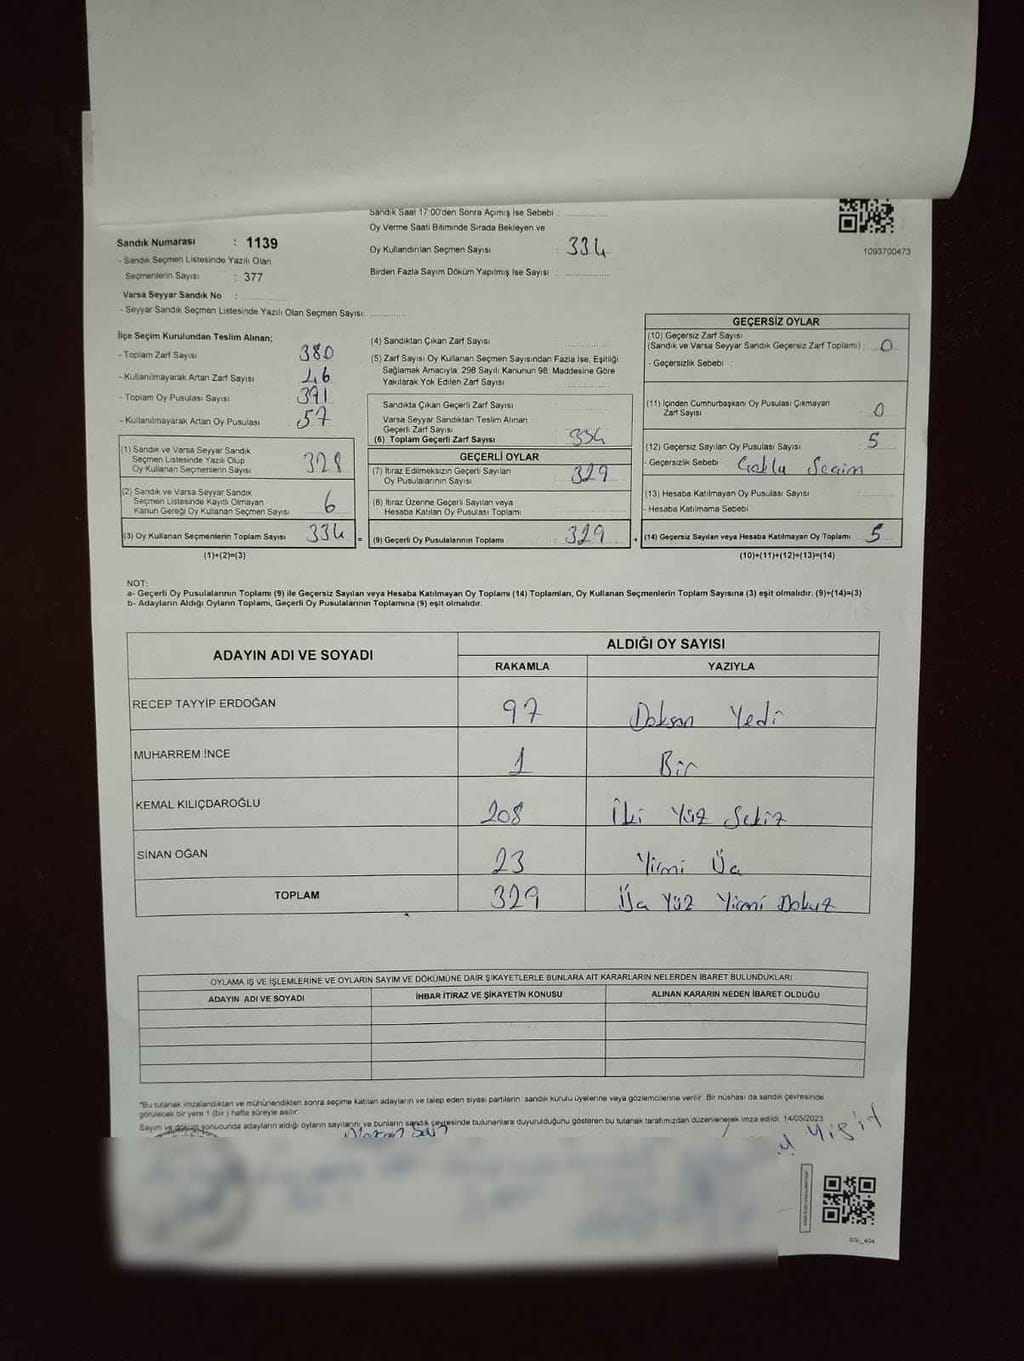 Sandık Saat 17:00'den Sonra Açımış İse Sebebi :
Oy Verme Saati Bitiminde Sırada Bekleyen ve
Oy Kullandırılan Seçmen Sayısı : 334
Birden Fazla Sayım Döküm Yapılmış İse Sayısı :
1093700473
Sandık Numarası : 1139
- Sandık Seçmen Listesinde Yazılı Olan
Seçmenlerin Sayısı : 377
Varsa Seyyar Sandık No :
- Seyyar Sandık Seçmen Listesinde Yazılı Olan Seçmen Sayısı:
İlçe Seçim Kurulundan Teslim Alınan;
- Toplam Zarf Sayısı 380
- Kullanılmayarak Artan Zarf Sayısı
- Toplam Oy Pusulası Sayısı 391
- Kullanılmayarak Artan Oy Pusulası 57
(1) Sandık ve Varsa Seyyar Sandık
Seçmen Listesinde Yazılı Olup
Oy Kullanan Seçmenlerin Sayısı 328
(2) Sandık ve Varsa Seyyar Sandık
Seçmen Listesinde Kayıtlı Olmayan
Kanun Gereği Oy Kullanan Seçmen Sayısı 6
(3) Oy Kullanan Seçmenlerin Toplam Sayısı 334 =
(1)+(2)=(3)
(4) Sandıktan Çıkan Zarf Sayısı
(5) Zarf Sayısı Oy Kullanan Seçmen Sayısından Fazla İse, Eşitliği
Sağlamak Amacıyla 298 Sayılı Kanunun 98. Maddesine Göre
Yakılarak Yok Edilen Zarf Sayısı
Sandıkta Çıkan Geçerli Zarf Sayısı
Varsa Seyyar Sandıktan Teslim Alınan
Geçerli Zarf Sayısı
(6) Toplam Geçerli Zarf Sayısı 334
GEÇERLİ OYLAR
(7) İtiraz Edilmeksizin Geçerli Sayılan
Oy Pusulalarının Sayısı 329
(8) İtiraz Üzerine Geçerli Sayılan veya
Hesaba Katılan Oy Pusulası Toplamı
(9) Geçerli Oy Pusulalarının Toplamı 329 +
GEÇERSİZ OYLAR
(10) Geçersiz Zarf Sayısı
(Sandık ve Varsa Seyyar Sandık Geçersiz Zarf Toplamı) : 0
- Geçersizlik Sebebi :
(11) İçinden Cumhurbaşkanı Oy Pusulası Çıkmayan
Zarf Sayısı 0
(12) Geçersiz Sayılan Oy Pusulası Sayısı 5
- Geçersizlik Sebebi : Çoklu Seçim
(13) Hesaba Katılmayan Oy Pusulası Sayısı
- Hesaba Katılmama Sebebi
(14) Geçersiz Sayılan veya Hesaba Katılmayan Oy Toplamı 5
(10)+(11)+(12)+(13)=(14)
NOT:
a- Geçerli Oy Pusulalarının Toplamı (9) ile Geçersiz Sayılan veya Hesaba Katılmayan Oy Toplamı (14) Toplamları, Oy Kullanan Seçmenlerin Toplam Sayısına (3) eşit olmalıdır. (9)+(14)=(3)
b- Adayların Aldığı Oyların Toplamı, Geçerli Oy Pusulalarının Toplamına (9) eşit olmalıdır.
ADAYIN ADI VE SOYADI ALDIĞI OY SAYISI
RAKAMLA YAZIYLA
RECEP TAYYİP ERDOĞAN 97 Doksan Yedi
MUHARREM İNCE 1 Bir
KEMAL KILIÇDAROĞLU 208 İki Yüz Sekiz
SİNAN OĞAN 23 Yirmi Üç
TOPLAM 329 Üç Yüz Yirmi Dokuz
OYLAMA İŞ VE İŞLEMLERİNE VE OYLARIN SAYIM VE DÖKÜMÜNE DAİR ŞİKAYETLERLE BUNLARA AİT KARARLARIN NELERDEN İBARET BULUNDUKLARI
ADAYIN ADI VE SOYADI İHBAR İTİRAZ VE ŞİKAYETİN KONUSU ALINAN KARARIN NEDEN İBARET OLDUĞU
*Bu tutanak imzalandıktan ve mühürlendikten sonra seçime katılan adayların ve talep eden siyasi partilerin sandık kurulu üyelerine veya gözlemcilerine verilir. Bir nüshası da sandık çevresinde
görülecek bir yere 1 (bir) hafta süreyle asılır.
Sayım ve döküm sonucunda adayların aldığı oyların sayılarını ve bunların sandık çevresinde bulunanlara duyurulduğunu gösteren bu tutanak tarafımızdan düzenlenerek imza edildi. 14/05/2023